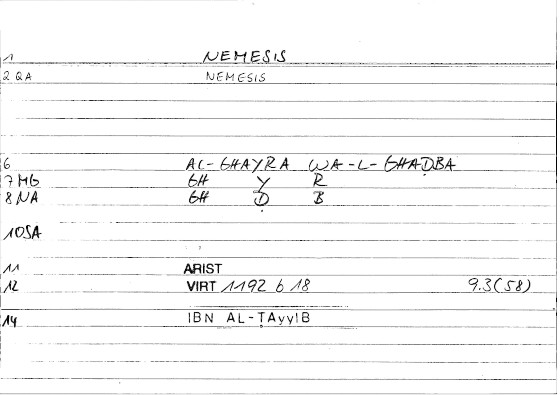 1 NEMESIS
2 QA NEMESIS
6 AL-GHAYRA WA-L-GHAḌBA
7 MG GH Y R
8 NA GH Ḍ B
10SA
11 ARIST
12 VIRT 1192 b 18 9.3(58)
14 IBN AL-ṬAyyIB